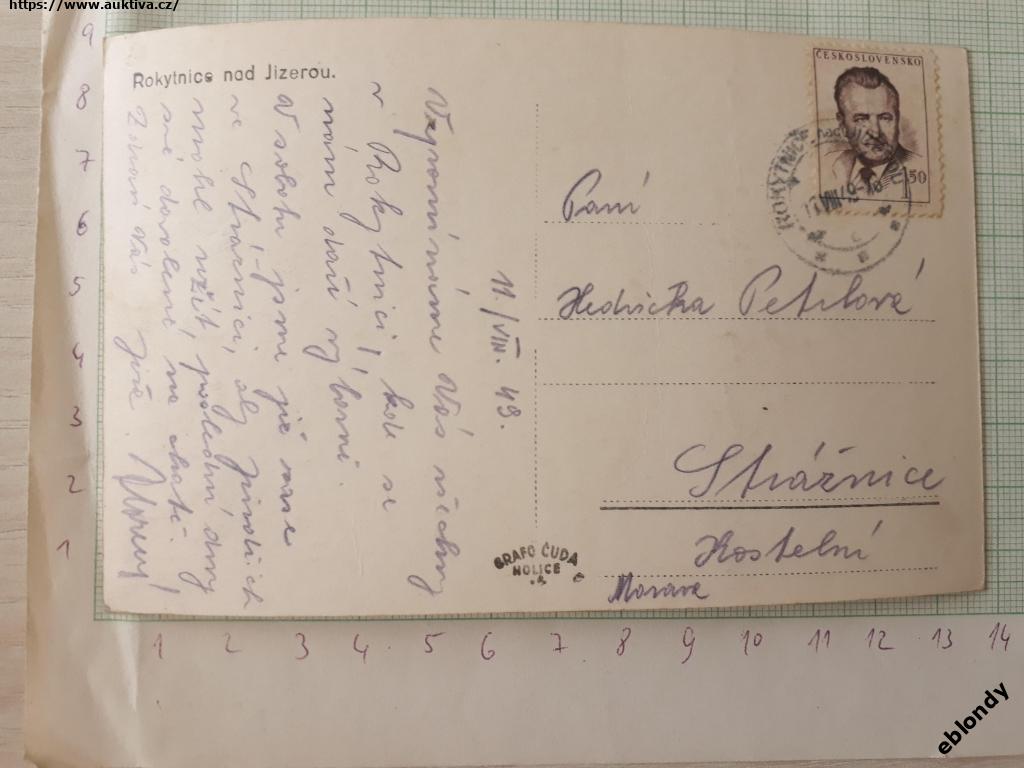 https://www.auktiva.cz/
Rokytnice nad Jizerou.
ČESKOSLOVENSKO
1,50
11./VIII. 49.
Vzpomínáme Vás všechny
v Rokytnici, kde se
nám daří výborně.
V sobotu jsme již zase
ve Strážnici,
mohl užít poslední dny
své dovolené, na chatě.
Zdraví Vás
Paní
Hedvička Petrlová
Strážnice
Kostelní
Morava
GRAFO ČUDA
HOLICE
9
8
7
6
5
4
3
2
1
1 2 3 4 5 6 7 8 9 10 11 12 13 14
eblondy